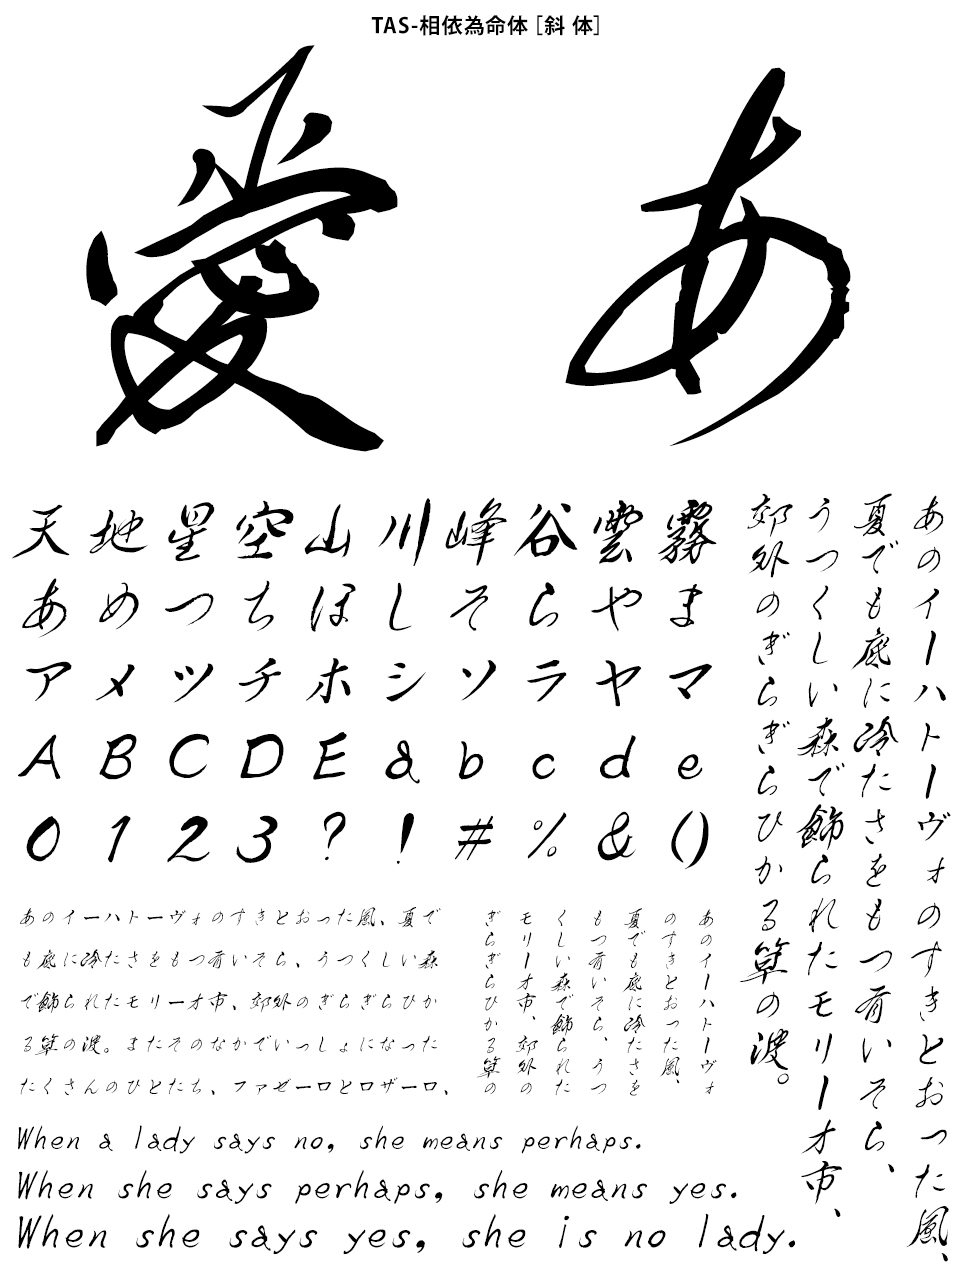 TAS-相依為命体 [斜 体]
愛 あ
天 地 星 空 山 川 峰 谷 雲 霧
あ め つ ち ほ し そ ら や ま
ア メ ツ チ ホ シ ソ ラ ヤ マ
A B C D E a b c d e
0 1 2 3 ? ! # % & ()
あのイーハトーヴォのすきとおった風、
夏でも底に冷たさをもつ青いそら、
うつくしい森で飾られたモリーオ市、
郊外のぎらぎらひかる草の波。
あのイーハトーヴォのすきとおった風、夏で
も底に冷たさをもつ青いそら、うつくしい森
で飾られたモリーオ市、郊外のぎらぎらひか
る草の波。またそのなかでいっしょになった
たくさんのひとたち、ファゼーロとロザーロ、
あのイーハトーヴォ
のすきとおった風、
夏でも底に冷たさを
もつ青いそら、うつ
くしい森で飾られた
モリーオ市、郊外の
ぎらぎらひかる草の
When a lady says no, she means perhaps.
When she says perhaps, she means yes.
When she says yes, she is no lady.